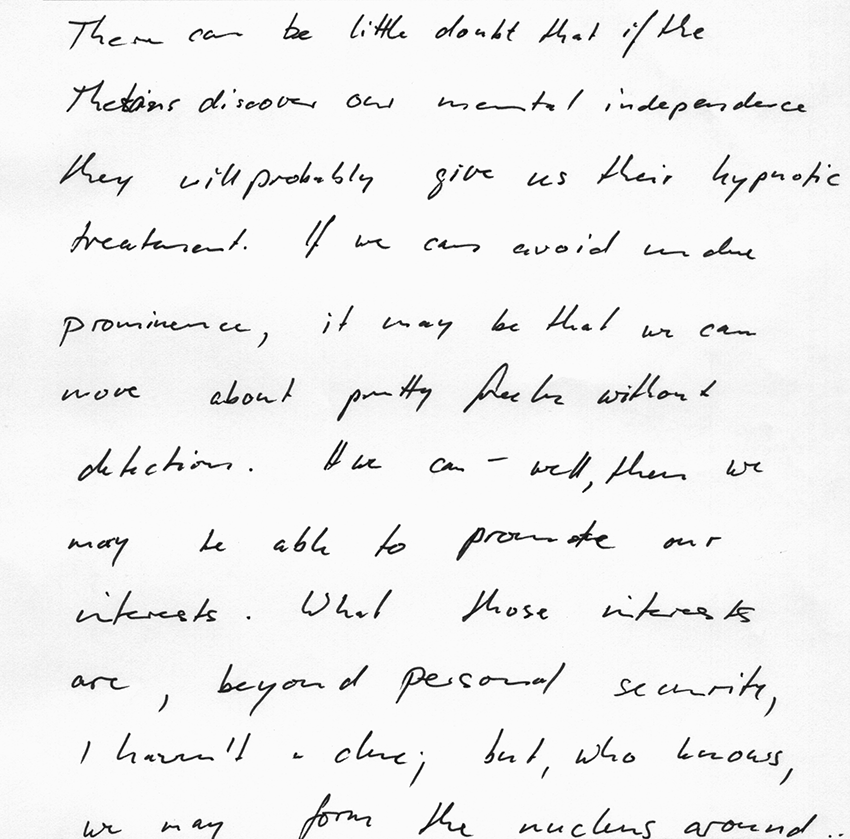 There can be little doubt that if the
Thetans discover our mental independence
they will probably give us their hypnotic
treatment. If we can avoid undue
prominence, it may be that we can
move about pretty freely without
detection. If we can – well, then we
may be able to promote our
interests. What those interests
are, beyond personal security,
I haven't a clue; but, who knows,
we may form the nucleus around..